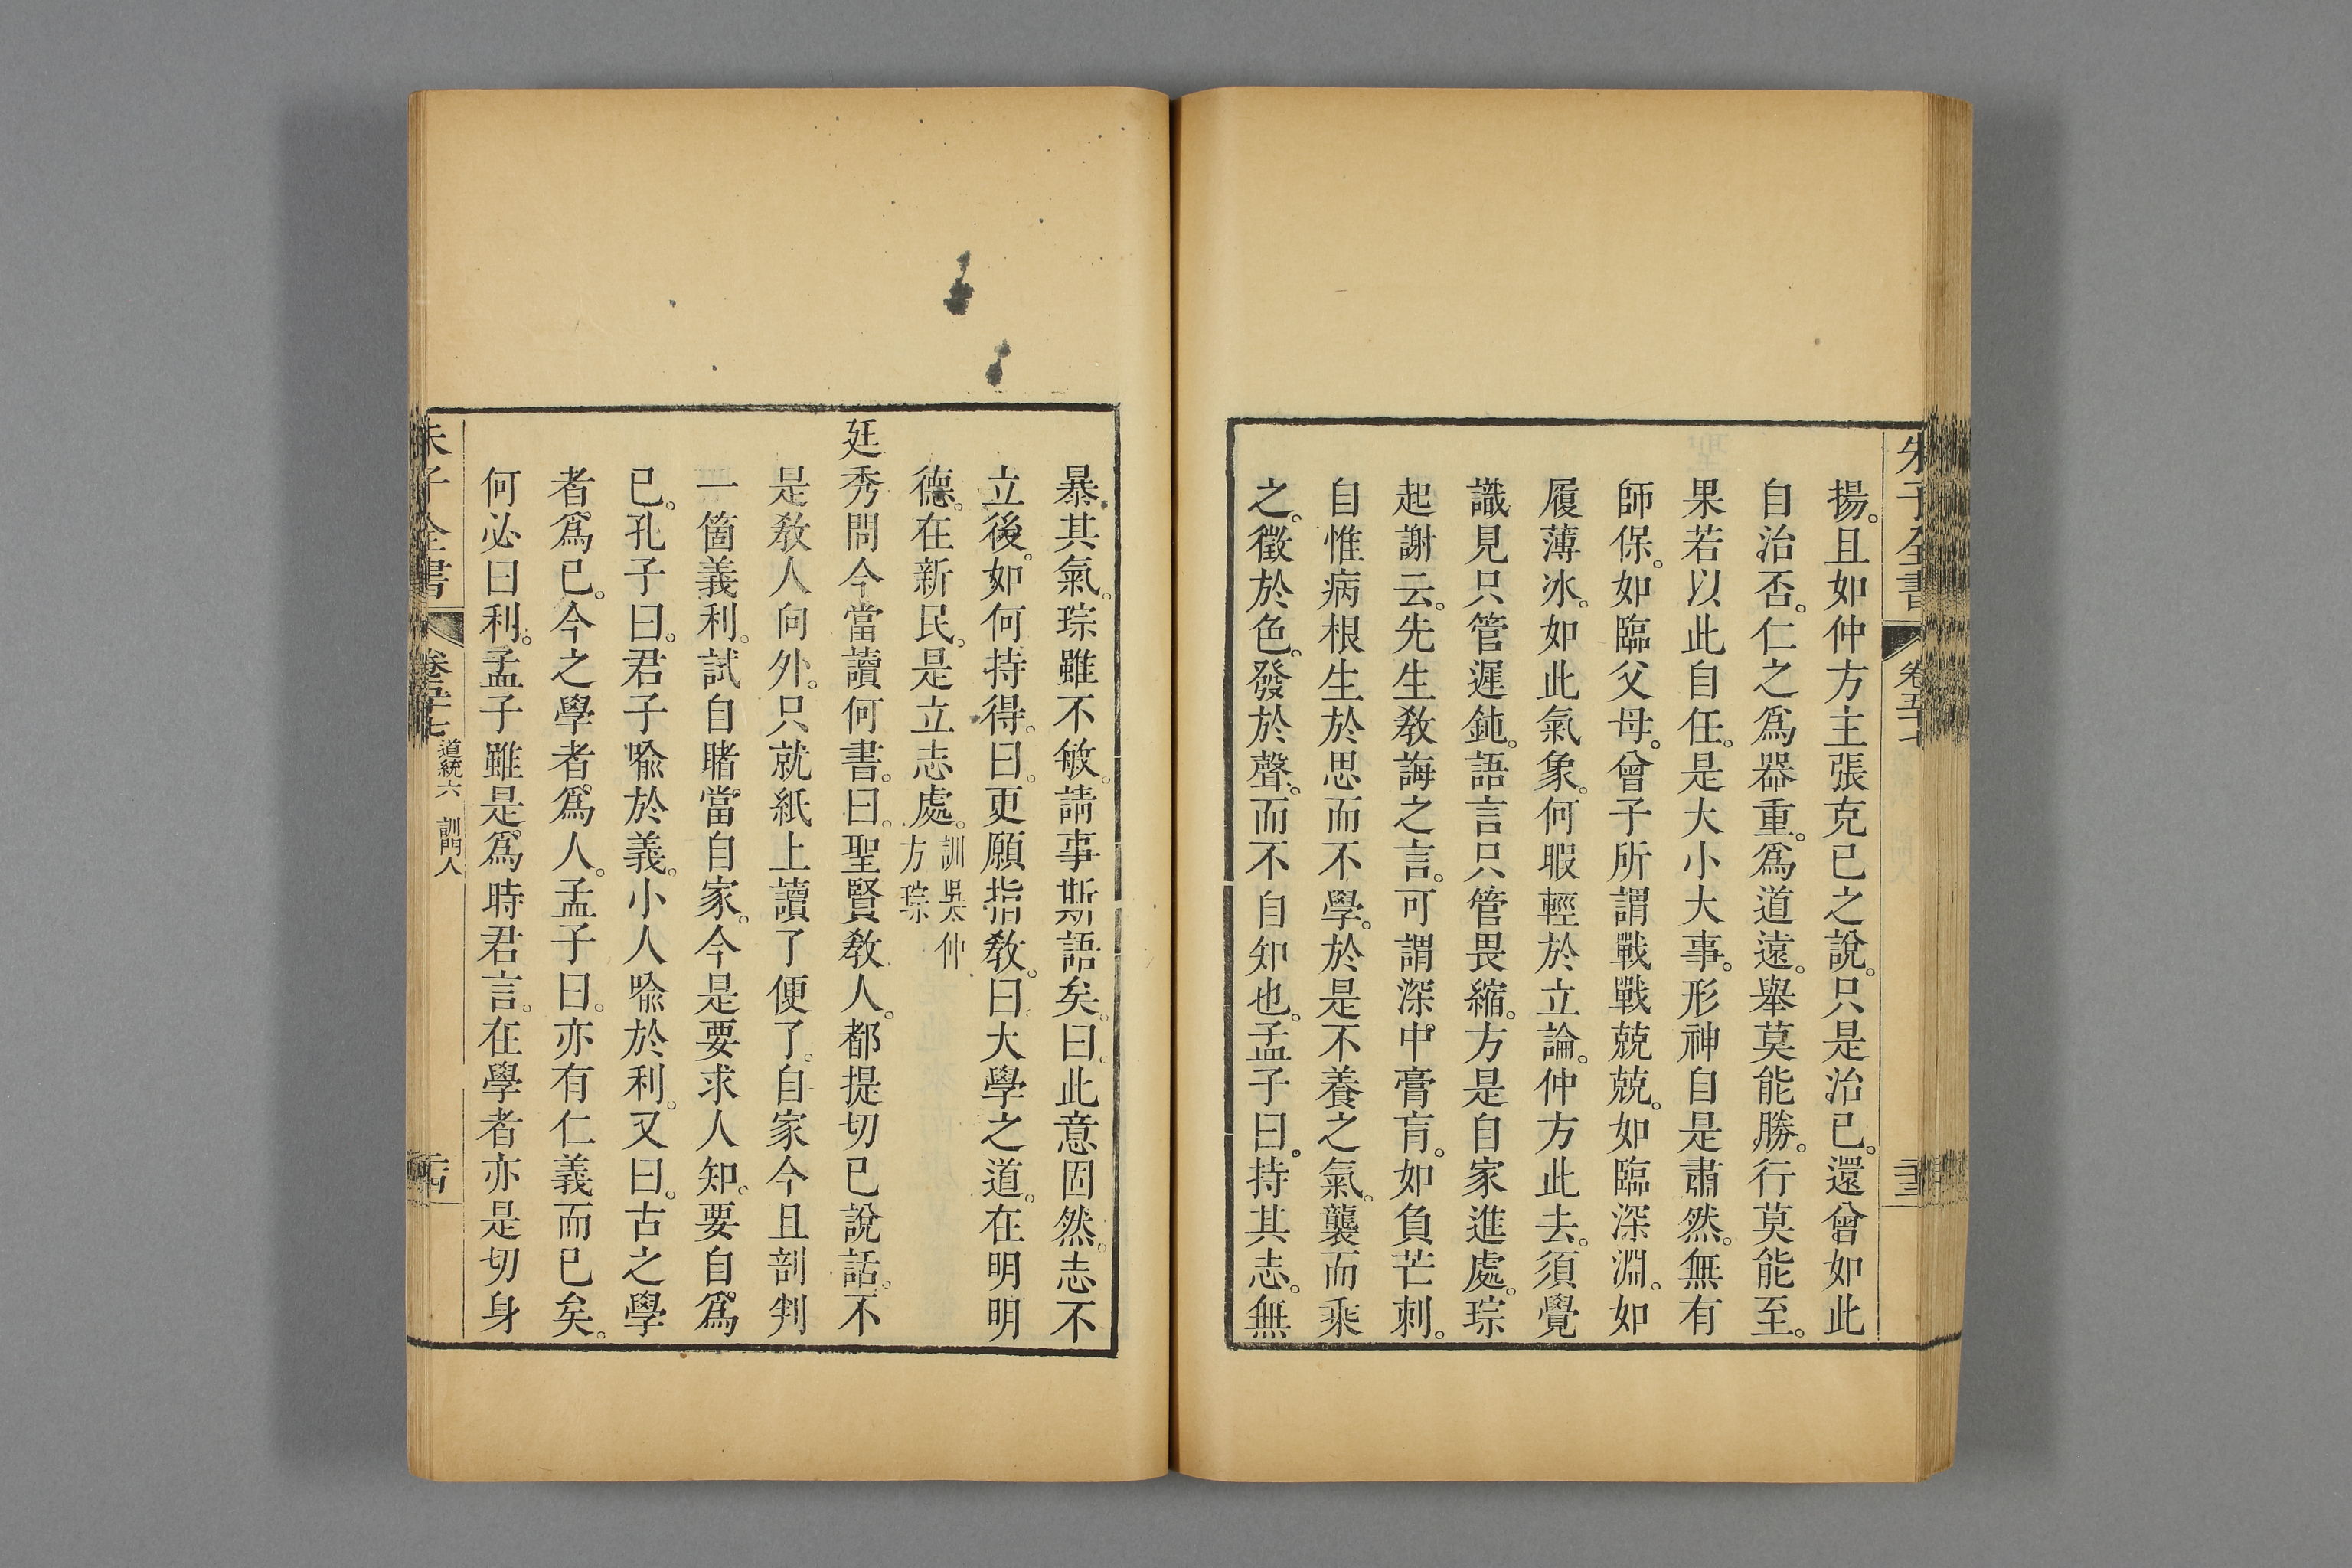 朱子全書 卷五十七
揚。且如仲方主張克已之說。只是治已。還曾如此
自治否。仁之爲器重。爲道遠。舉莫能勝。行莫能至。
果若以此自任。是大小大事。形神自是肅然。無有
師保。如臨父母。曾子所謂戰戰兢兢。如臨深淵。如
履薄冰。如此氣象。何暇輕於立論。仲方此去。須覺
識見只管遲鈍。語言只管畏縮。方是自家進處。琮
起謝云。先生教誨之言。可謂深中膏肓。如負芒刺。
自惟病根生於思而不學。於是不養之氣。襲而乘
之。徵於色。發於聲。而不自知也。孟子曰。持其志。無
暴其氣。琮雖不敏。請事斯語矣。曰。此意固然。志不
立後。如何持得。曰。更願指教。曰。大學之道。在明明
德。在新民。是立志處。訓吳仲方琮
廷秀問今當讀何書。曰。聖賢教人。都提切已說話。不
是教人向外。只就紙上讀了便了。自家今且剖判
一箇義利。試自睹當自家。今是要求人知。要自爲
已。孔子曰。君子喩於義。小人喩於利。又曰。古之學
者爲已。今之學者爲人。孟子曰。亦有仁義而已矣。
何必曰利。孟子雖是爲時君言。在學者亦是切身
朱子全書 卷五十七 道統六 訓門人 二十四